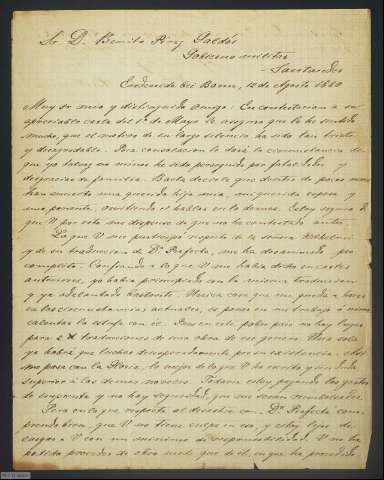 Sr D. Benito Perez Galdós
Gobierno militar
Santander
12 de Agosto 1880
Muy Sr mio y distinguido amigo: En contestacion a su
apreciable carta del 1º de Mayo le aseguro que lo he sentido
mucho, que el motivo de su largo silencio ha sido tan triste
y desagradable. Para consolacion le dará la circunstancia de
que yo he sido perseguido por fatalidades y
desgracias de familia. Basta decirle que dentro de pocos meses
han muerto una querida hija mia, mi querida esposa y
una parienta, omitiendo el hablar de lo demas. Estoy seguro de
que V por esto me dispensa de que no he contestado antes.
Lo que V me participa respecto de la señora
y de su traduccion de Dª Perfecta, me ha desanimado por
completo. Confiando a lo que V me habia dicho en cartas
anteriores, yo habia principiado con la misma traduccion
y ya adelantado bastante.
en las circunstancias actuales, es poner en mi trabajo ó mismo
calentar la estufa con él. Pues en este pobre pais no hay lugar
para 2 traducciones de una obra de ese genero. Una sola
ya habrá que luchar desesperadamente por su existencia. Asi
me pasa con la Gloria, lo mejor de lo que V ha escrito y en mucho
superior á las demas novelas. Todavia estoy pagando los gastos
de imprenta y no hay seguridad, que me serán reembolsados.
Pero en lo que respecta al desastre con Dª Perfecta com-
prendo bien, que V no tiene culpa en eso y estoy lejos de
cargar a V con un minimo de responsabilidad. V no ha
podido proceder de otro modo que de él, en que ha procedido